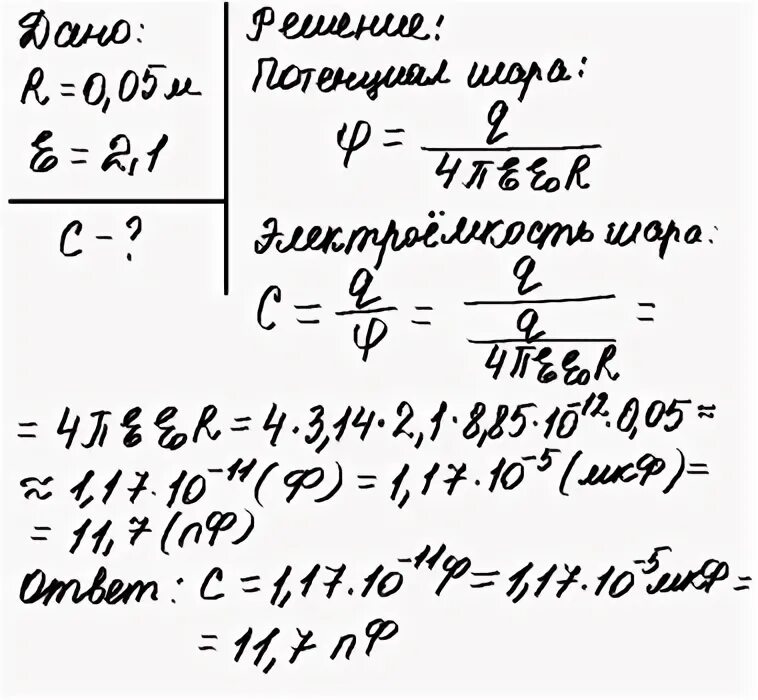 Дано:
R = 0,05 м
ε = 2,1
C - ?
Решение:
Потенциал шара:
φ = q / 4πεε₀R
Электроёмкость шара:
C = q/φ = q / (q / 4πεε₀R) =
= 4πεε₀R = 4·3,14·2,1·8,85·10⁻¹²·0,05 ≈
≈ 1,17·10⁻¹¹ (Ф) = 1,17·10⁻⁵ (мкФ) =
= 11,7 (пФ)
Ответ: C = 1,17·10⁻¹¹ Ф = 1,17·10⁻⁵ мкФ =
= 11,7 пФ